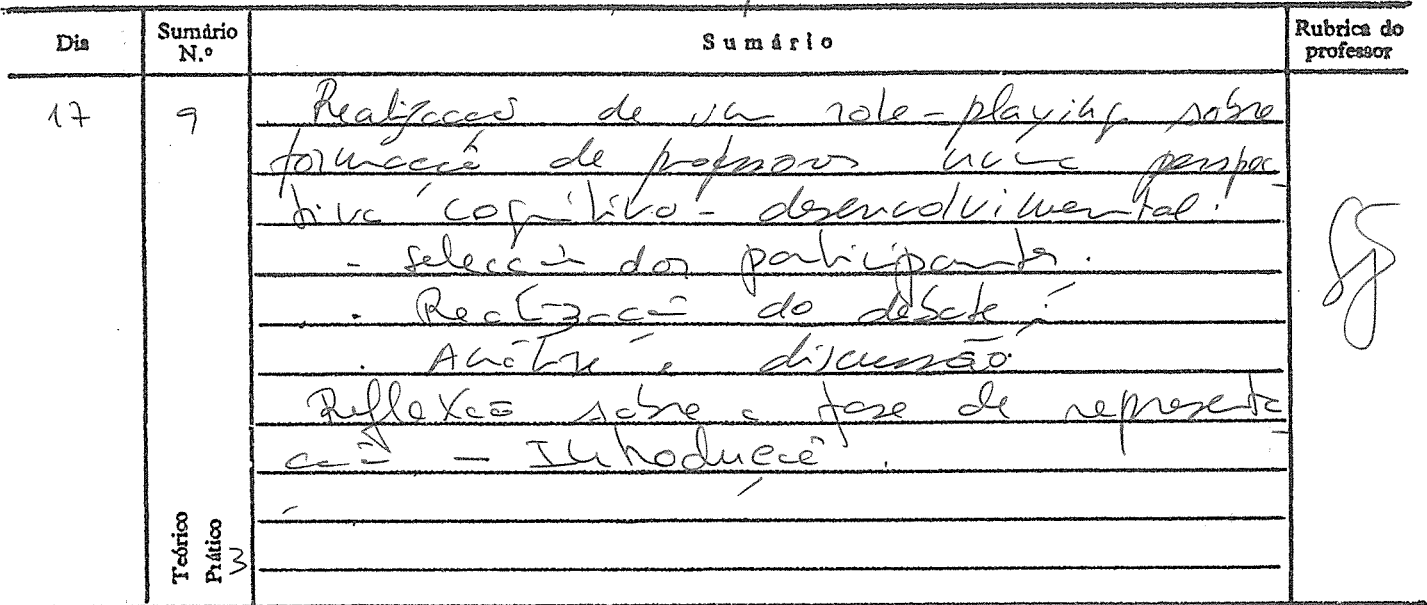 Dia
Sumário N.º
Sumário
Rubrica do professor
17
9
Realização de um role-playing sobre
formação de professores numa perspec
tiva cognitivo-desenvolvimental:
- selecção dos participantes.
. Realização do debate;
. Análise e discussão.
Reflexão sobre a fase de representa
ção - Introdução.
Teórico
Prático
3